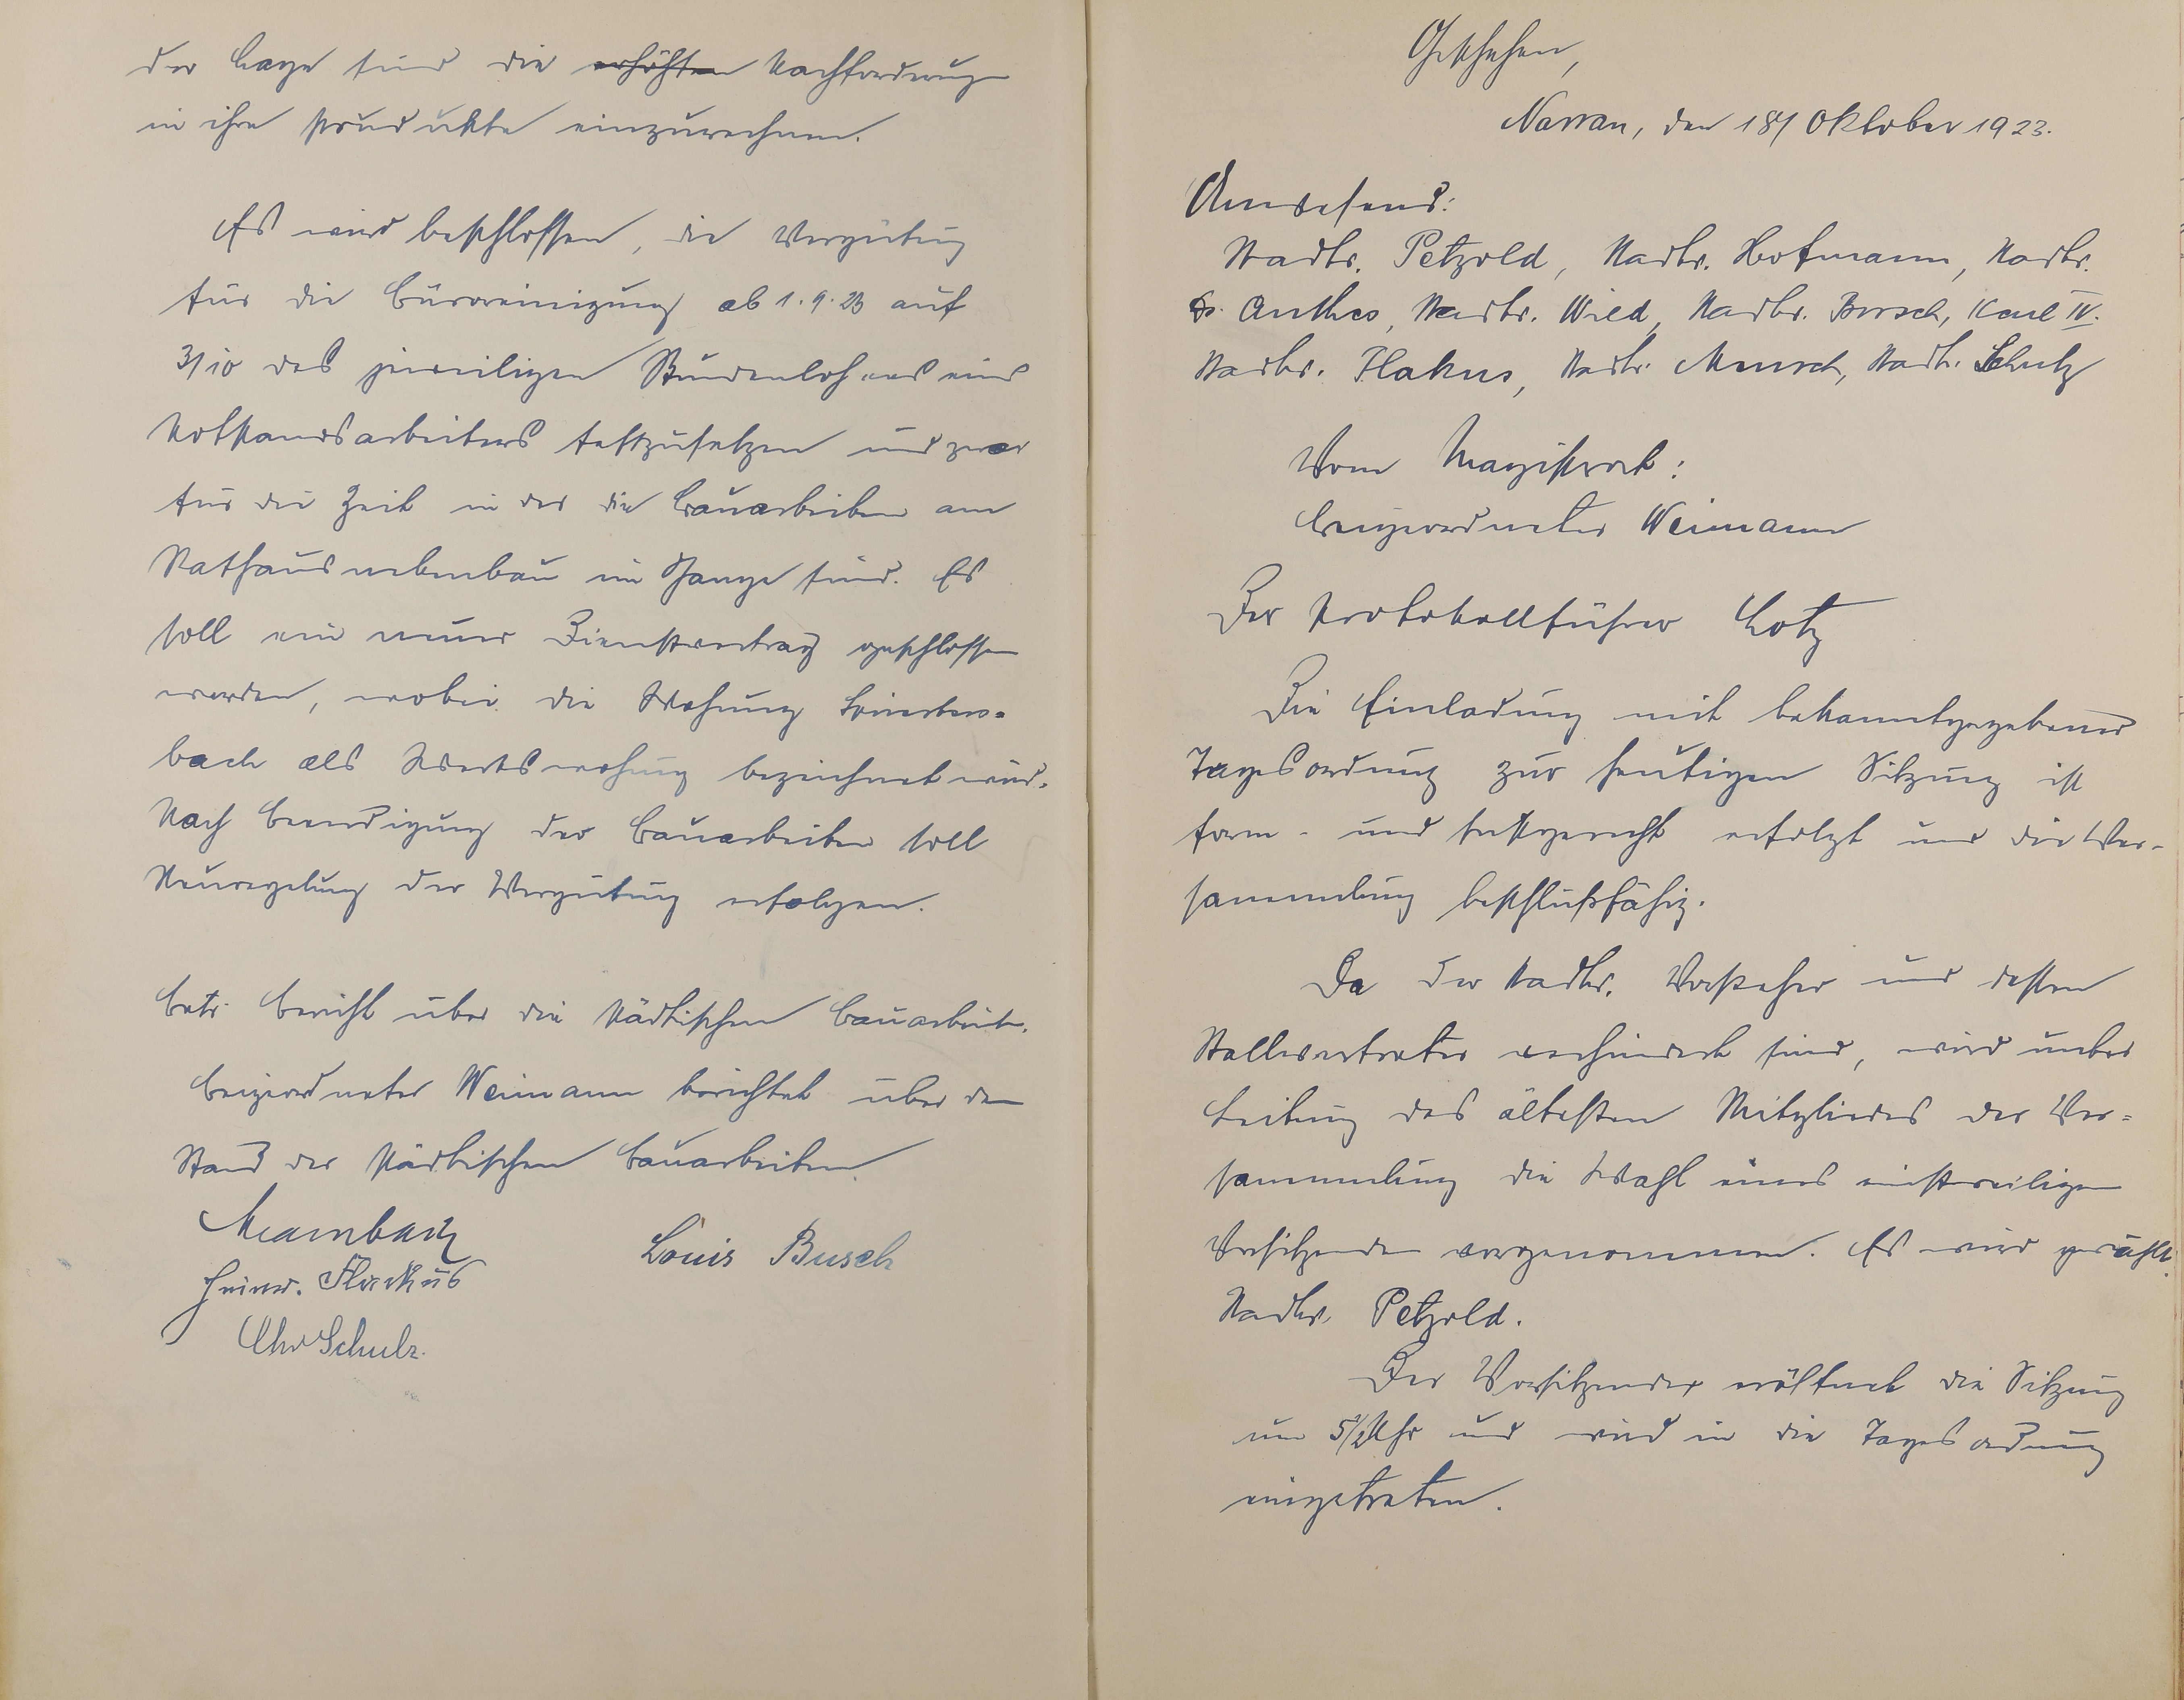 der Lage sind die erhöhten Nachforderungen
in ihre Produkte einzurechnen.
Es wird beschlossen, die Vergütung
für die Büroreinigung ab 1.9.23 auf
3/10 des jeweiligen Stundenlohnes eines
Notstandsarbeiters festzusetzen und zwar
für die Zeit in der die Bauarbeiten am
Rathausnebenbau im Gange sind. Es
soll ein neuer Dienstvertrag geschlossen
werden, wobei die Wohnung
bach als Dienstwohnung bezeichnet wird.
Nach Beendigung der Bauarbeiten soll
Neuregelung der Vergütung erfolgen.
Betr. Bericht über die städtischen Bauarbeiten.
Beigeordneter Weimann berichtet über den
Stand der städtischen Bauarbeiten.
Louis Busch
Heinr. Flackus
Chr Schulz.
Geschehen,
den 18/ Oktober 1923.
Anwesend:
Stadtv. Petzold, Stadtv. Hofmann, Stadtv.
Dr. Anthes, Stadtv. Wild, Stadtv. Busch, Karl IV.
Stadtv. Flakus, Stadtv. Stadtv. Schulz
Vom Magistrat:
Beigeordneter Weimann
Der Protokollführer Lotz
Die Einladung mit bekanntgegebener
Tagesordnung zur heutigen Sitzung ist
form- und fristgerecht erfolgt und die Ver-
sammlung beschlußfähig.
Da der Stadtv. Vorsteher und dessen
Stellvertreter verhindert sind, wird unter
Leitung des ältesten Mitgliedes der Ver=
sammlung die Wahl eines einstweiligen
Vorsitzenden vorgenommen. Es wird gewählt
Stadtv. Petzold.
Der Vorsitzende eröffnet die Sitzung
um 5½ Uhr und wird in die Tagesordnung
eingetreten.